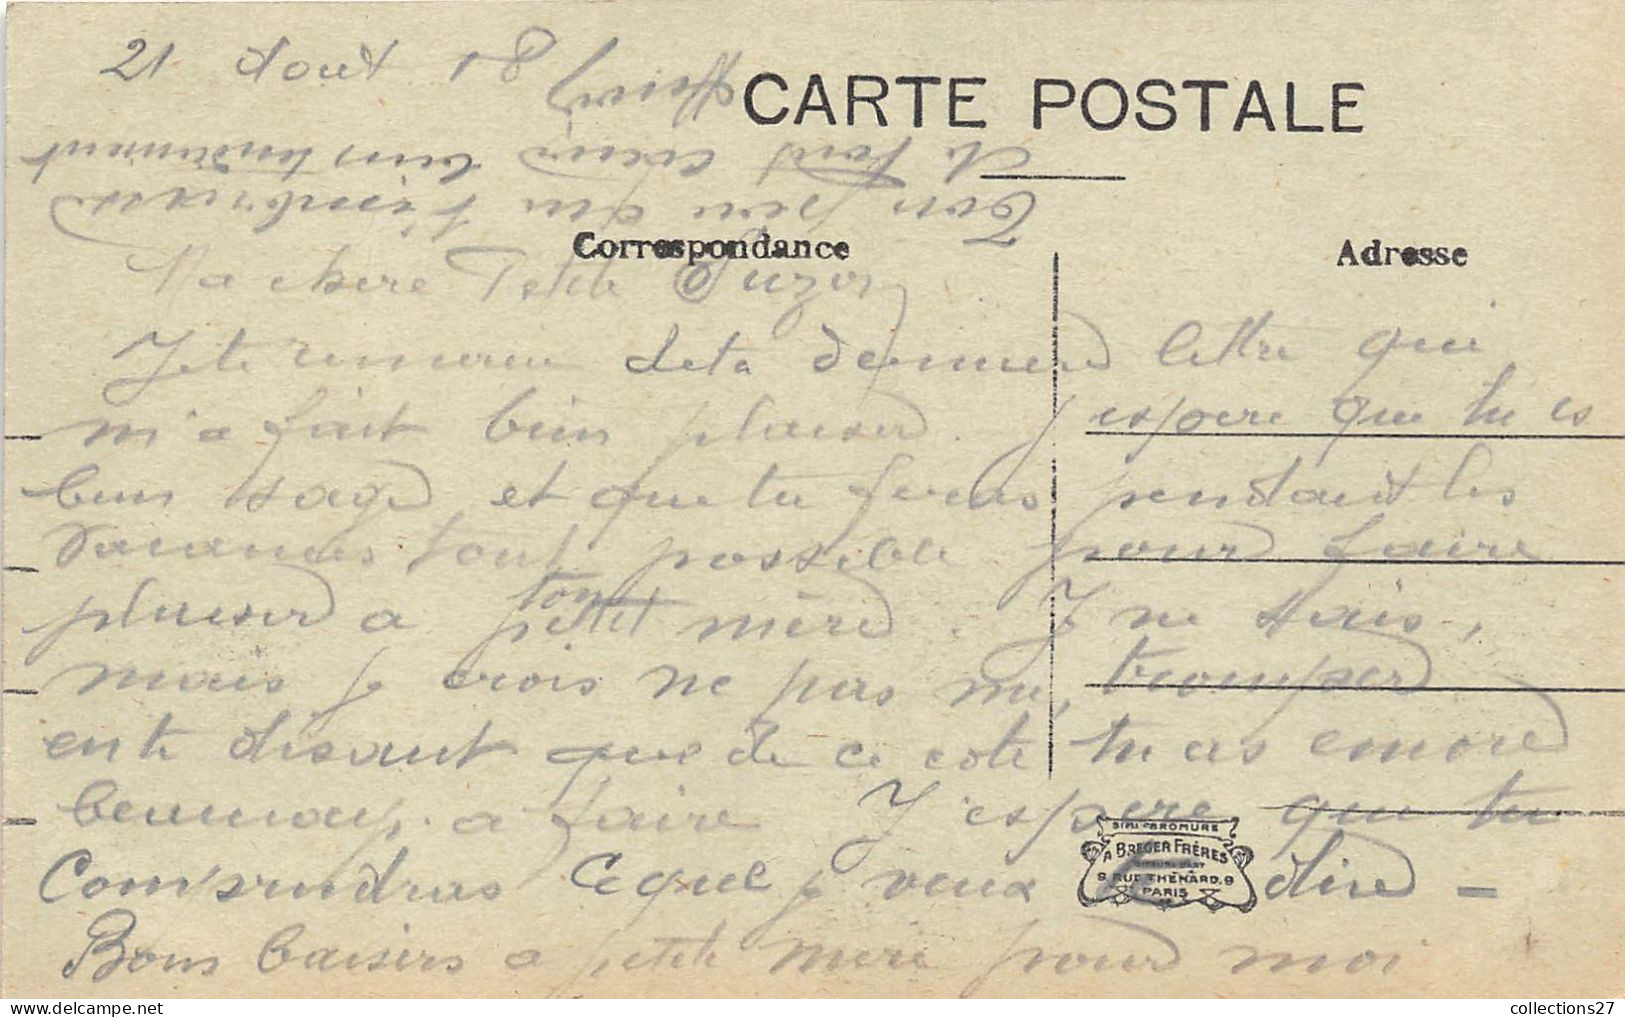 21 Aout 18
CARTE POSTALE
Correspondance
Adresse
Ma chere Petite Suzon
Je te remercie de ta derniere lettre qui
m'a fait bien plaisir. J'espere que tu es
bien sage et que tu feras pendant les
vacances tout possible pour faire
plaisir a ton petit mère. J ne sais,
mais je crois ne pas me, tromper
en te disant que de ce coté tu as encore
beaucoup a faire J'espere que tu
Comprendras Ce que je veux dire -
Bons baisers a petite mere pour moi
Ton père qui t'embrasse
de tout coeur bien tendrement
Henry
SIMILI-BROMURE
A BREGER FRÈRES
9 RUE THÉNARD. 9
PARIS
collections27